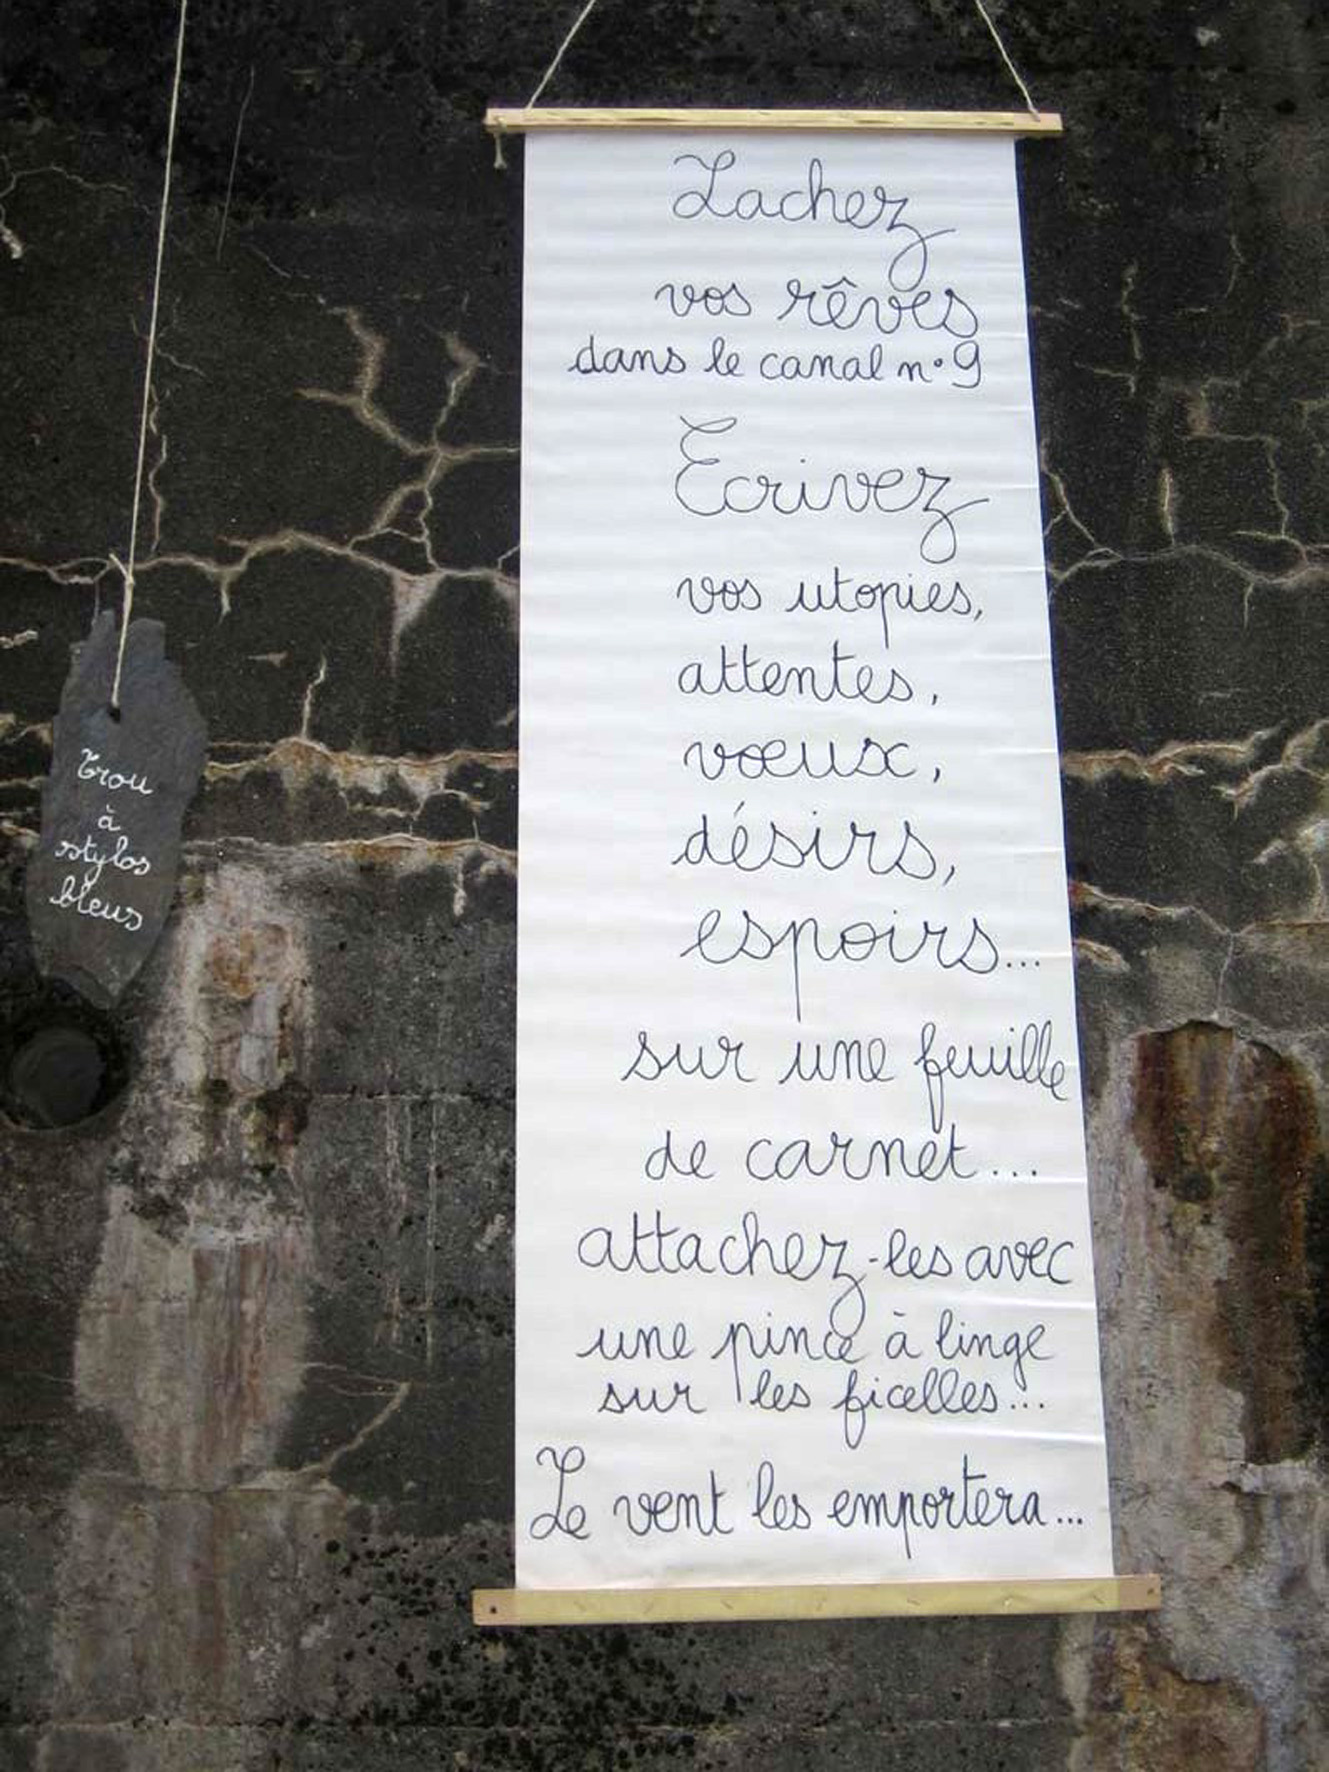 Lachez
vos rêves
dans le canal n°9
Ecrivez
vos utopies,
attentes,
vœux,
désirs,
espoirs...
sur une feuille
de carnet...
attachez-les avec
une pince à linge
sur les ficelles...
Le vent les emportera...
Trou
à
stylos
bleus